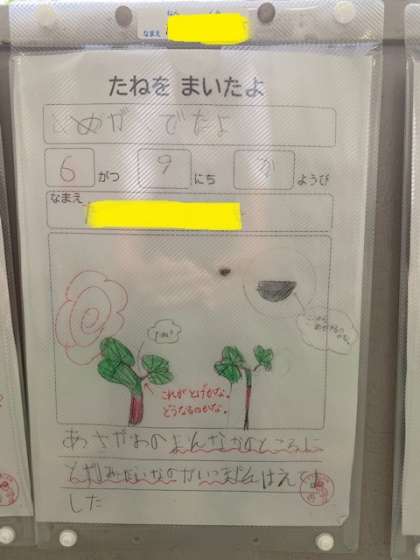 なまえ
たねを まいたよ
めが、でたよ
6 がつ 9 にち か ようび
なまえ
これがとげかな。
どうなるのかな。
あさがおのまんなかのところに
とげみたいなのがいっぽんはえてま
した